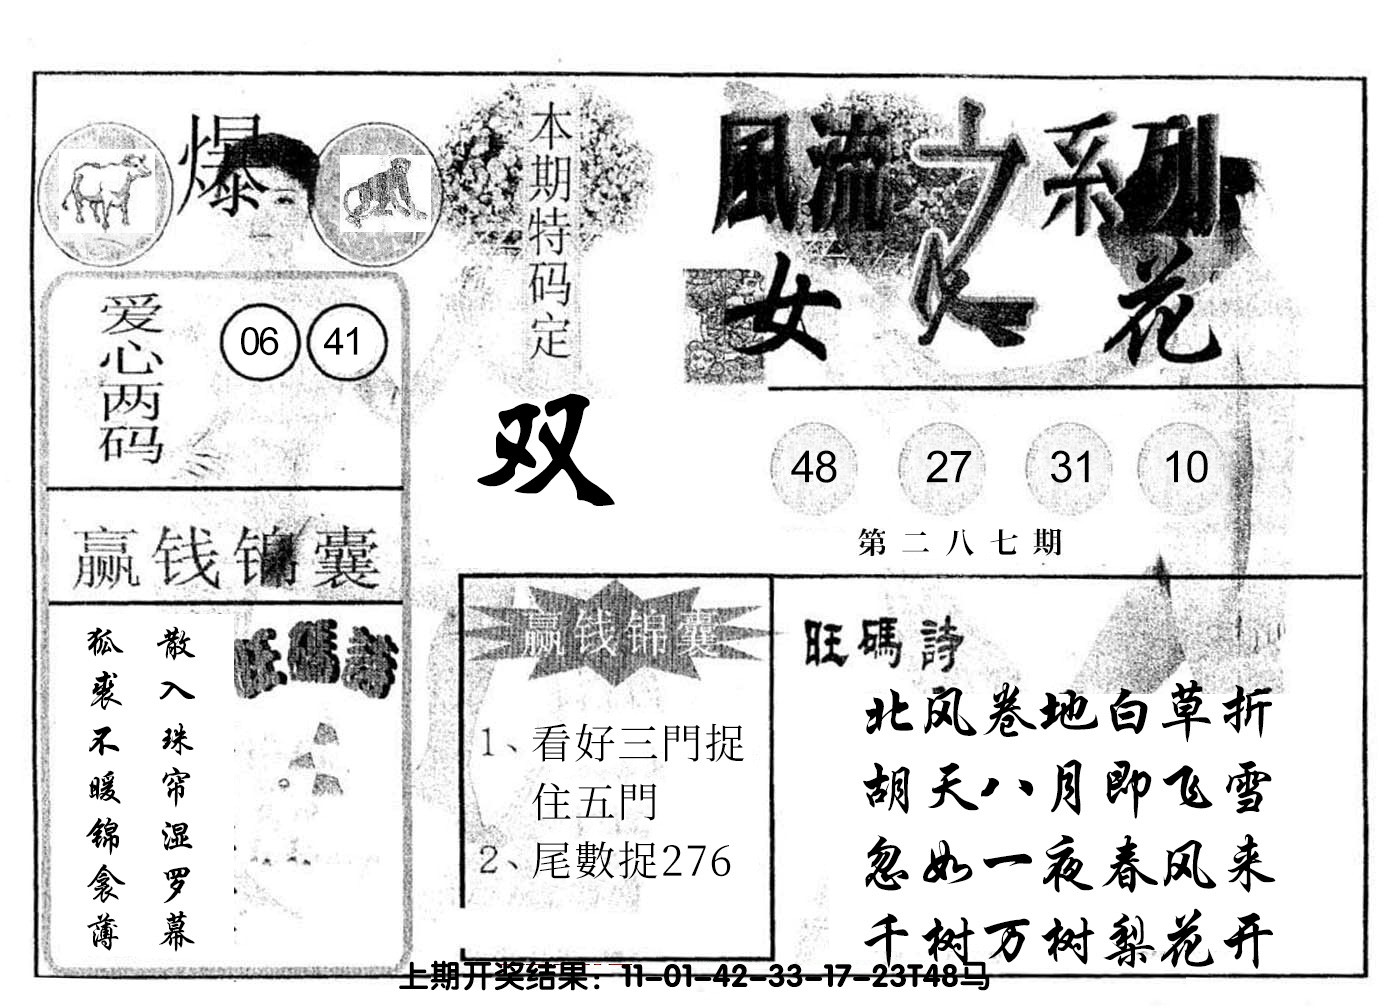 爆
本期特码定
双
風流之系列
女人花
爱心两码
06 41
48 27 31 10
第二八七期
赢钱锦囊
散入珠帘湿罗幕
狐裘不暖锦衾薄
旺碼詩
赢钱锦囊
1、看好三門捉
住五門
2、尾數捉276
旺碼詩
北风卷地白草折
胡天八月即飞雪
忽如一夜春风来
千树万树梨花开
上期开奖结果：11-01-42-33-17-23T48马